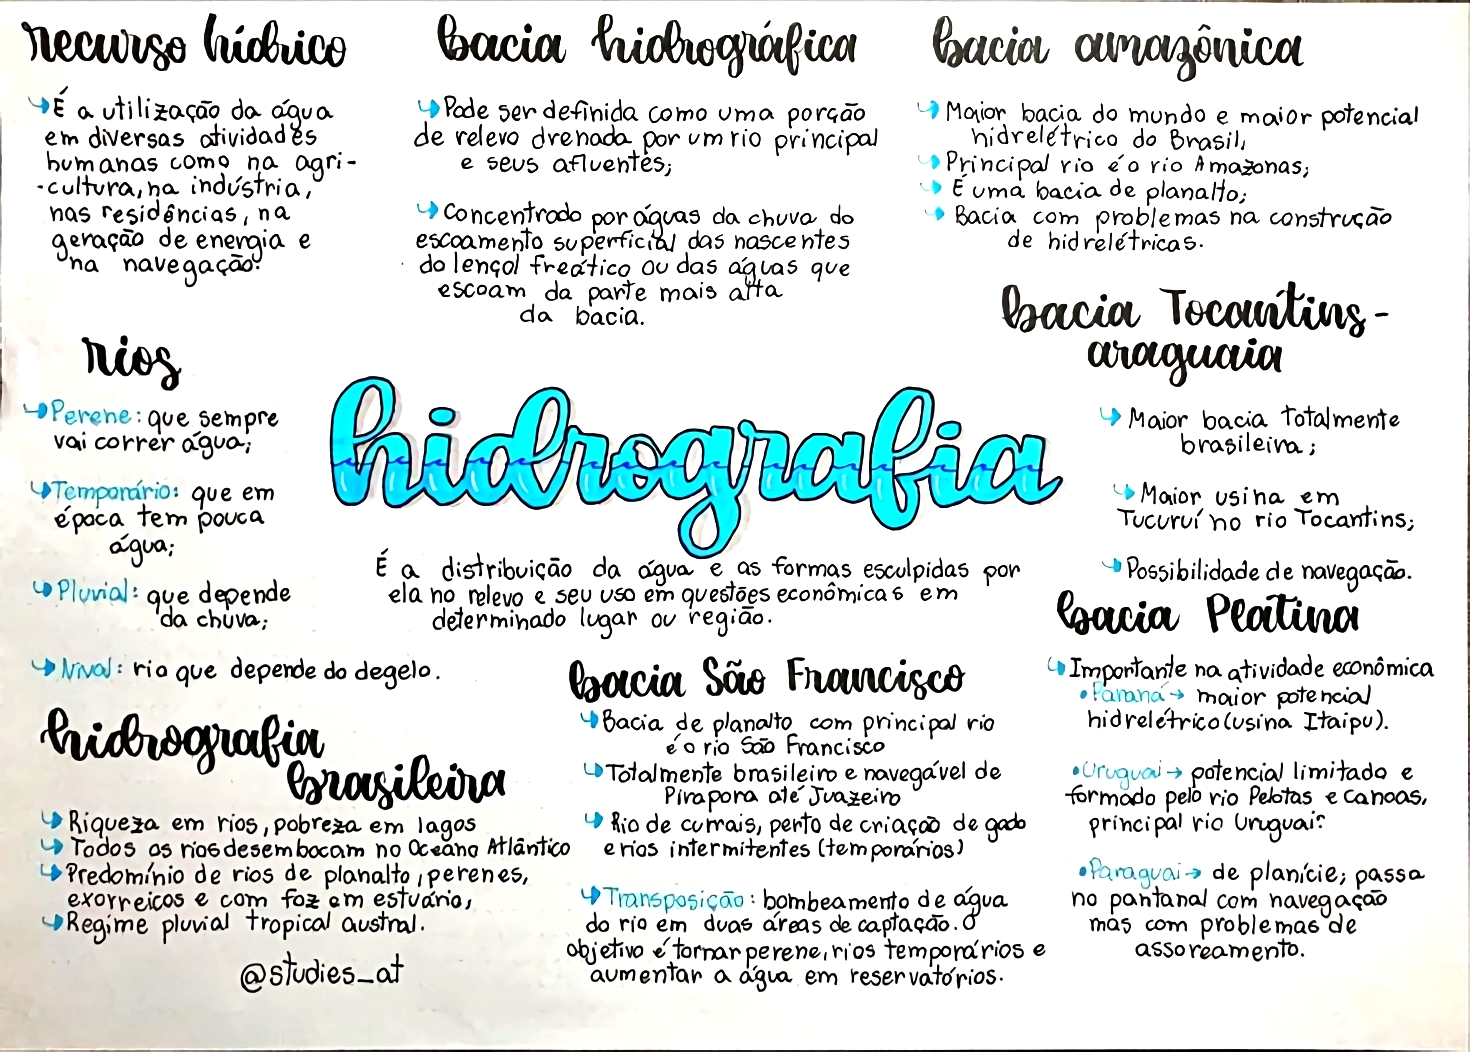 recurso hídrico
É a utilização da água
em diversas atividades
humanas como na agri-
-cultura, na indústria,
nas residências, na
geração de energia e
na navegação.
bacia hidrográfica
Pode ser definida como uma porção
de relevo drenada por um rio principal
e seus afluentes;
Concentrado por águas da chuva do
escoamento superficial das nascentes
do lençol freático ou das águas que
escoam da parte mais alta
da bacia.
bacia amazônica
Maior bacia do mundo e maior potencial
hidrelétrico do Brasil,
Principal rio é o rio Amazonas;
É uma bacia de planalto;
Bacia com problemas na construção
de hidrelétricas.
bacia Tocantins-
araguaia
Maior bacia totalmente
brasileira;
Maior usina em
Tucuruí no rio Tocantins;
Possibilidade de navegação.
rios
Perene: que sempre
vai correr água;
Temporário: que em
época tem pouca
água;
Pluvial: que depende
da chuva;
Nival: rio que depende do degelo.
hidrografia
É a distribuição da água e as formas esculpidas por
ela no relevo e seu uso em questões econômicas em
determinado lugar ou região.
hidrografia
brasileira
Riqueza em rios, pobreza em lagos
Todos os rios desembocam no Oceano Atlântico
Predomínio de rios de planalto, perenes,
exorreicos e com foz em estuário,
Regime pluvial tropical austral.
@studies_at
bacia São Francisco
Bacia de planalto com principal rio
é o rio São Francisco
Totalmente brasileiro e navegável de
Pirapora até Juazeiro
Rio de currais, perto de criação de gado
e rios intermitentes (temporários)
Transposição: bombeamento de água
do rio em duas áreas de captação. O
objetivo é tornar perene, rios temporários e
aumentar a água em reservatórios.
bacia Platina
Importante na atividade econômica
•Paraná→ maior potencial
hidrelétrico (usina Itaipu).
•Uruguai→ potencial limitado e
formado pelo rio Pelotas e canoas,
principal rio Uruguai?
•Paraguai→ de planície; passa
no pantanal com navegação
mas com problemas de
assoreamento.